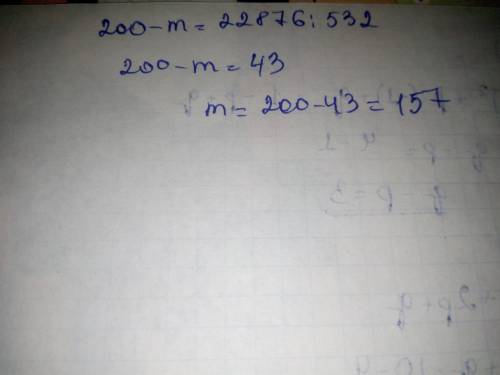 200-m=22876:532
200-m=43
m=200-43=157